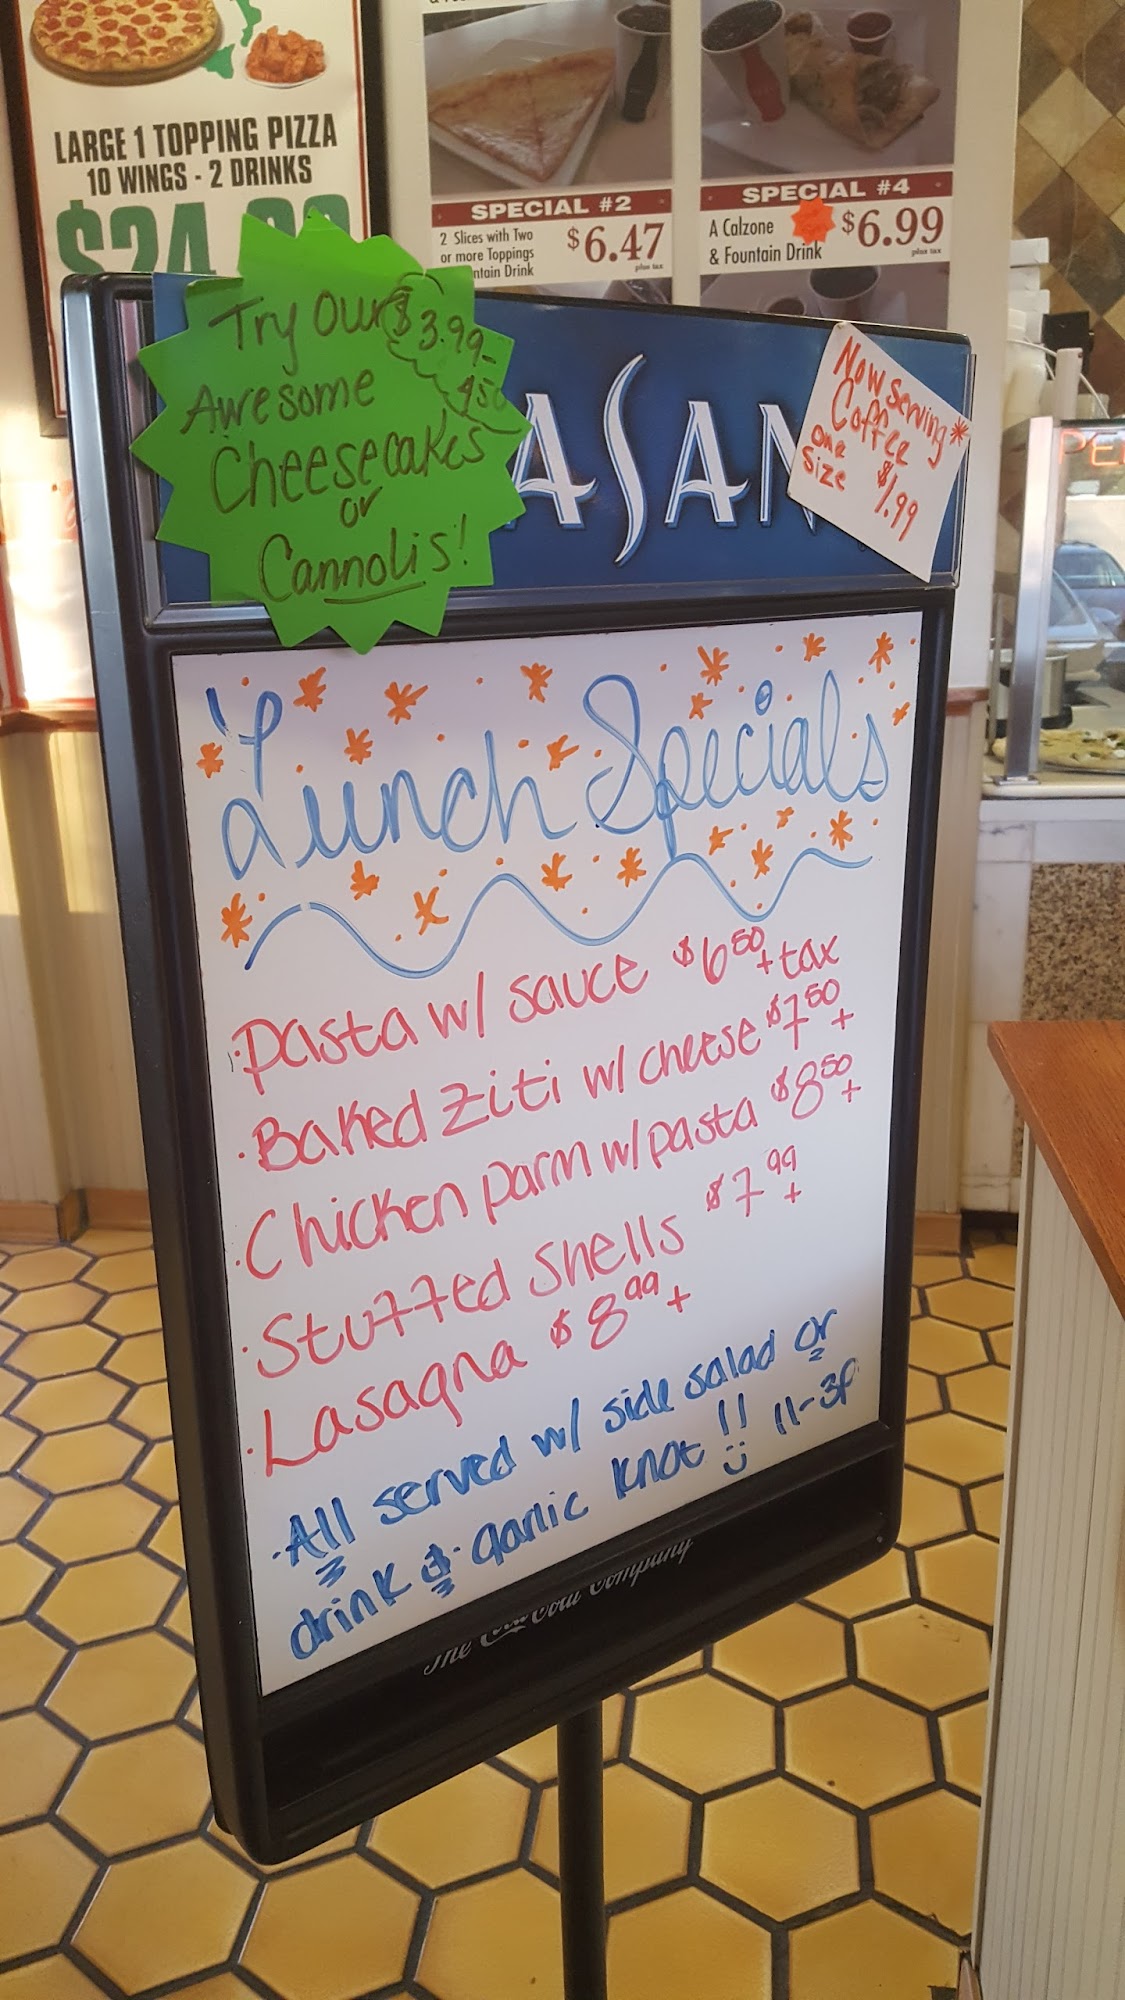 LARGE 1 TOPPING PIZZA
10 WINGS - 2 DRINKS
SPECIAL #2
2 Slices with Two
or more Toppings
ntain Drink
$6.47
plus tax
SPECIAL #4
A Calzone
& Fountain Drink
$6.99
plus tax
Try Our
Awesome
Cheesecakes
or
Cannolis!
$3.99-
4.50
ASAN
Now serving
Coffee
one
size
$1.99
Lunch Specials
· Pasta w/ sauce $6.50 + tax
· Baked Ziti w/ cheese $7.50 +
· Chicken parm w/ pasta $8.50 +
· Stuffed Shells $7.99 +
· Lasagna $8.99 +
· All served w/ side salad or
drink & garlic knot!! 11-3p
The Coca-Cola Company